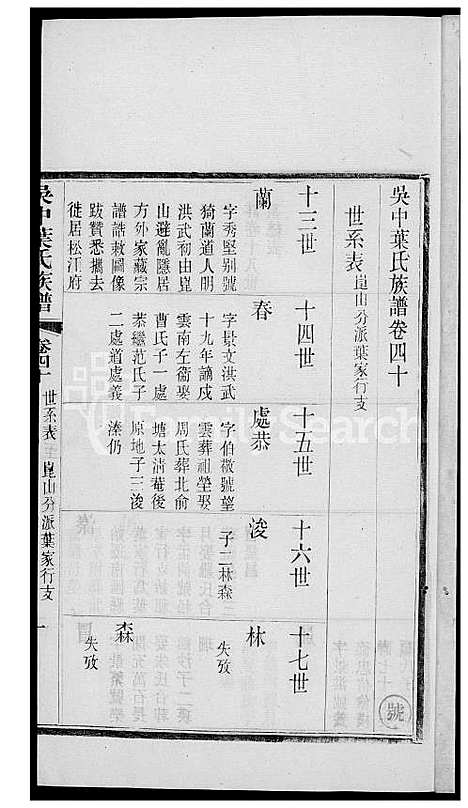 吳中葉氏族譜卷四十
世系表崑山分派葉家行支
十三世
十四世
十五世
十六世
十七世
蘭
字秀堅别號
猗蘭道人明
洪武初由崑
山避亂隱居
方外家藏宗
譜誥敕圖像
跋贊悉攜去
徙居松江府
春
字景文洪武
十九年謫戍
雲南左衞娶
曹氏子一處
恭繼范氏子
二處道處義
處恭
字伯敬號望
雲葬祖塋娶
周氏葬北俞
塘太淸菴後
原地子三浚
溱仍
浚
子二林森
林
失攷
森
失攷
吳中葉氏族譜
卷四十
世系表
崑山分派葉家行支
一
號
FamilySearch